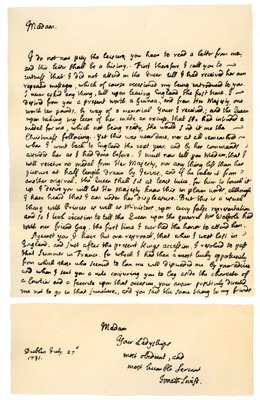 Madam.
I do not now pity the leisure you have to read a letter from me,
and this letter shall be a history. First therefore I call you to
witness that I did not attend on the Queen till I had received her own
repeated messages, which of course occasioned my being introduced to you.
I never asked any thing till upon leaving England the first time, I
desired from you a present worth a guinea, and from Her Majesty one
worth ten pounds, by way of a memorial. Yours I received; and the Queen
upon taking my leave of her, made an excuse, that she had intended a
medal for me, which not being ready, she would send it me the
Christmas following. Yet this was never done, nor at all remembered
when I went back to England the next year, and by her commands
attended her as I had done before. I must now tell you Madam, that I
will receive no medal from Her Majesty, nor any thing less than her
picture at half length drawn by Jervas, and if he takes it from
another original, the Queen shall sit at least twice for him to touch it
up. I desire you will let Her Majesty know this in plain words, although
I have heard that I am under her displeasure. But this is a usual
thing with Princes as well as Ministers upon every false representation
and so I took occasion to tell the Queen upon the quarrel Mr. Walpole had
with our friend Gay, the first time I ever had the honor to attend her.
Against you I have but one reproach, that when I was last in
England, and just after the present King's accession, I resolved to pass
that Summer in France, for which I had then a most lucky opportunity,
from which those who seemed to love me well dissuaded me by your advice
and when I sent you a note conjuring you to lay aside the character of
a Courtier and a favorite upon that occasion, your answer positively directed
me not to go in that juncture, and you said the same thing to my friends
Madam
Your Ladyships
most obedient, and
most humble Servant
Jonath: Swift.
Dublin July 27th
1731.